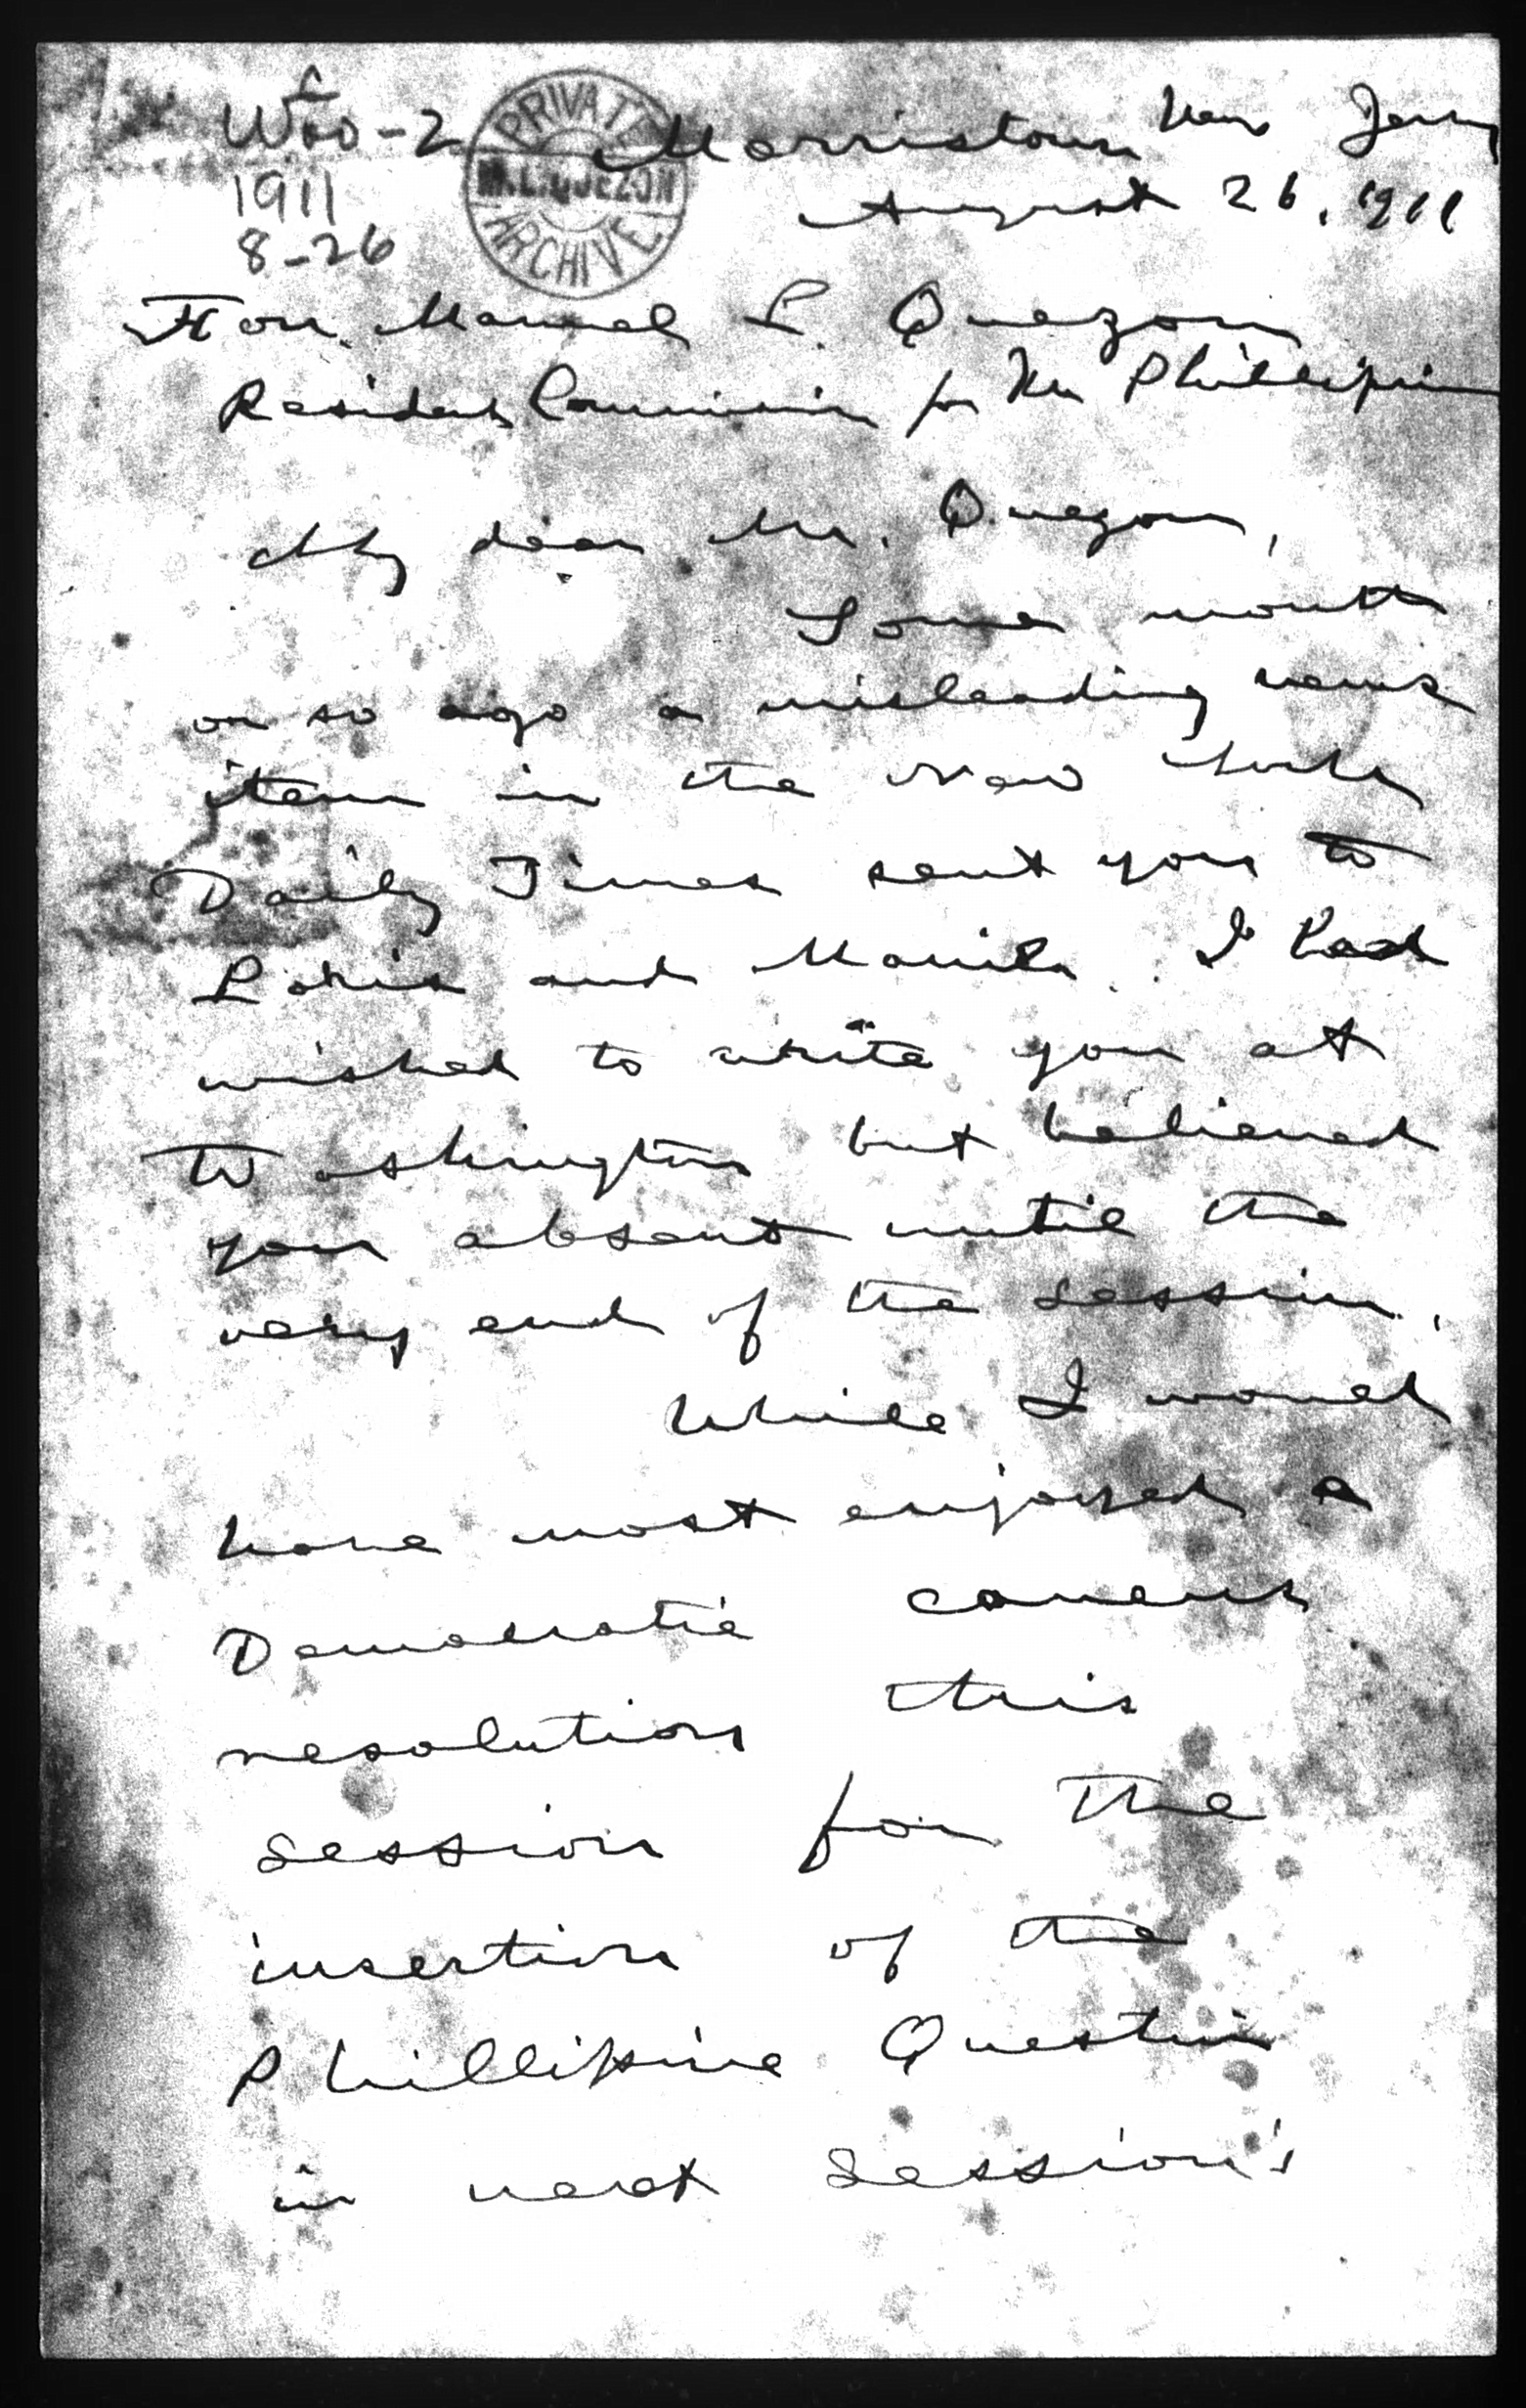 Woo-2
1911
8-26
PRIVATE
M.L. QUEZON
ARCHIVE
Morristown New Jersey
August 26, 1911
Hon. Manuel L. Quezon
Resident Commissioner for the Phillippines
My dear Mr. Quezon,
Some month
or so ago a misleading news
item in the New York
Daily Times sent you to
Paris and Manila. I had
wished to write you at
Washington but believed
you absent until the
very end of the session.
While I would
have most enjoyed a
Democratic caucus
resolution this
session for the
insertion of the
Phillipine Question
in next session's